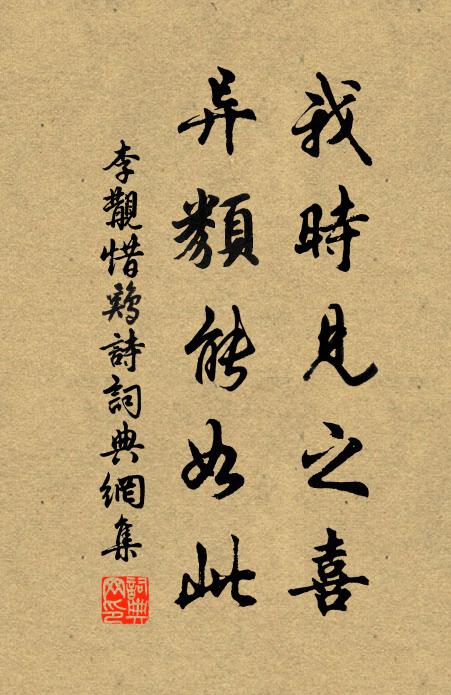 我時見之喜
异類能如此
李覯惜鷄詩詞典網集
詞典網印